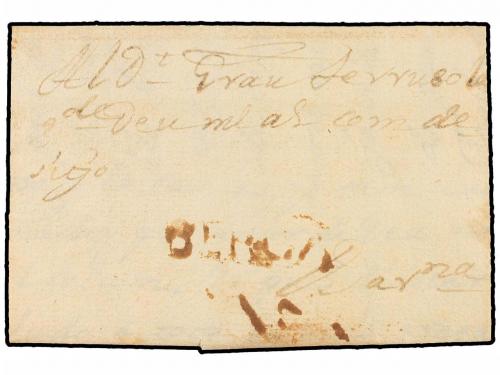 Al Dt Grau Serrusola
gde Deu mi at com de-
sitjo
BERGA
Barna